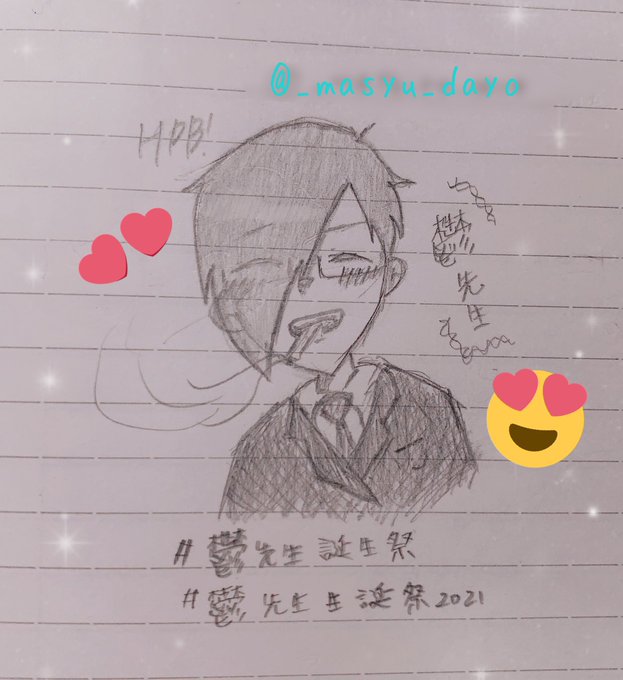 @_masyu_dayo
HPB!
鬱先生
#鬱先生誕生祭
#鬱先生生誕祭2021